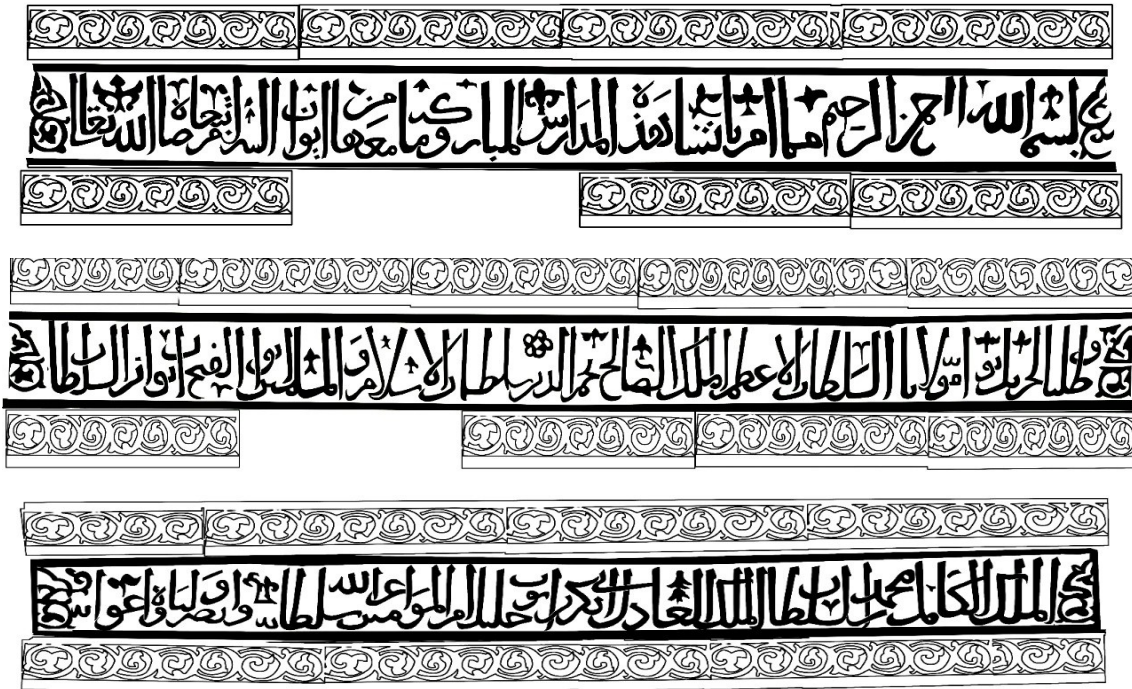 بسم الله الرحمن الرحيم مما امر بانشا هذه المدارس المباركة وما معها من ابواب البر ابتغاء مرضاة الله تعالى
وطلبا لجزيل ثوابه مولانا السلطان الاعظم الملك الصالح نجم الدين سلطان الاسلام والمسلمين ابو الفتح ايوب بن السلطان
الملك الكامل محمد بن السلطان الملك العادل ابي بكر بن ايوب خليل امير المومنين اعز الله سلطانه ونصر اولياه واعوانه